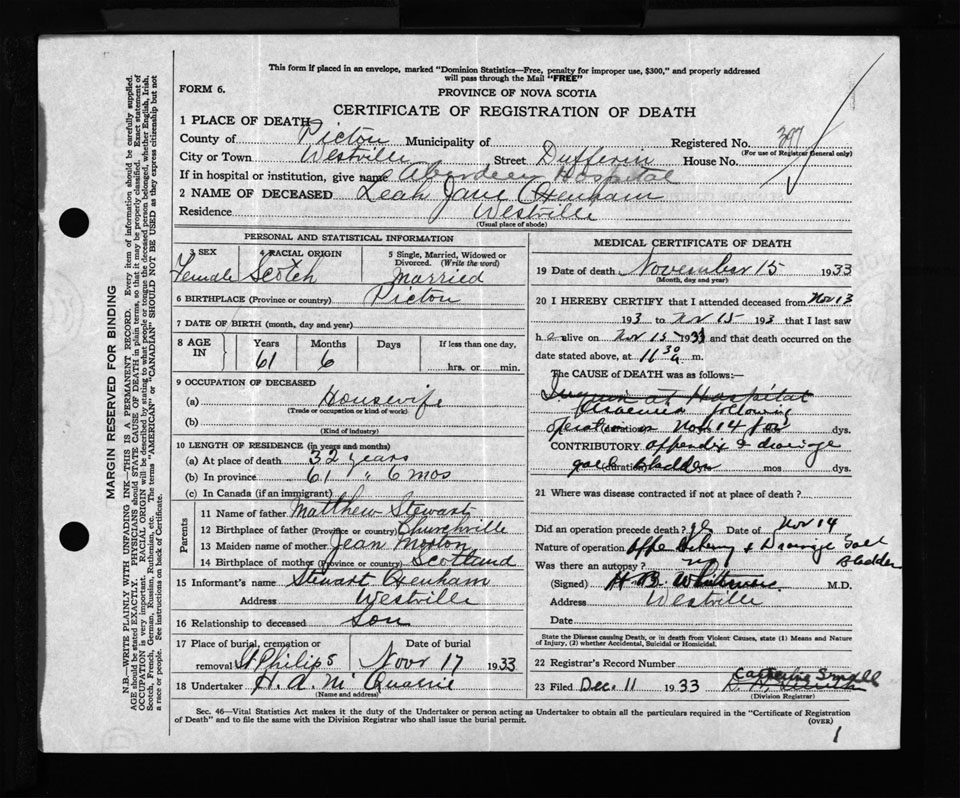 This form if placed in an envelope, marked "Dominion Statistics—Free, penalty for improper use, $300," and properly addressed
will pass through the Mail "FREE"
FORM 6.
PROVINCE OF NOVA SCOTIA
CERTIFICATE OF REGISTRATION OF DEATH
1 PLACE OF DEATH
County of Pictou Municipality of Registered No. 397
(For use of Registrar General only)
City or Town Westville Street Dufferin House No.
If in hospital or institution, give name Aberdeen Hospital
2 NAME OF DECEASED Leah Jane Oxenham
Residence Westville
(Usual place of abode)
PERSONAL AND STATISTICAL INFORMATION
3 SEX Female
4 RACIAL ORIGIN Scotch
5 Single, Married, Widowed or Divorced. (Write the word) Married
6 BIRTHPLACE (Province or country) Pictou
7 DATE OF BIRTH (month, day and year)
8 AGE IN Years 61 Months 6 Days If less than one day, hrs. or min.
9 OCCUPATION OF DECEASED
(a) Housewife
(Trade or occupation or kind of work)
(b)
(Kind of industry)
10 LENGTH OF RESIDENCE (in years and months)
(a) At place of death 32 years
(b) In province 61 " 6 mos
(c) In Canada (if an immigrant)
Parents
11 Name of father Matthew Stewart
12 Birthplace of father (Province or country) Churchville
13 Maiden name of mother Jean Morton
14 Birthplace of mother (Province or country) Scotland
15 Informant's name Stewart Oxenham
Address Westville
16 Relationship to deceased Son
17 Place of burial, cremation or removal St Philips Date of burial Novr 17 1933
18 Undertaker H. A. McQuarrie
(Name and address)
MEDICAL CERTIFICATE OF DEATH
19 Date of death November 15 1933
(Month, day and year)
20 I HEREBY CERTIFY that I attended deceased from Nov 13
193 to Nov 15 193 that I last saw
h er alive on Nov 15 1933 and that death occurred on the
date stated above, at 11 30 a m.
The CAUSE of DEATH was as follows:—
at Hospital
following
operation Nov 14 for dys.
CONTRIBUTORY appendix & drainage
gall bladder (duration) mos dys.
21 Where was disease contracted if not at place of death?
Did an operation precede death? yes Date of Nov 14
Nature of operation & Drainage Gall Bladder
Was there an autopsy? no
(Signed) M.D.
Address Westville
Date
State the Disease causing Death, or in death from Violent Causes, state (1) Means and Nature
of Injury, (2) whether Accidental, Suicidal or Homicidal.
22 Registrar's Record Number
23 Filed Dec. 11 1933 Catherine Small
(Division Registrar)
Sec. 46—Vital Statistics Act makes it the duty of the Undertaker or person acting as Undertaker to obtain all the particulars required in the "Certificate of Registration
of Death" and to file the same with the Division Registrar who shall issue the burial permit.
(OVER)
1
MARGIN RESERVED FOR BINDING
N.B.—WRITE PLAINLY WITH UNFADING INK—THIS IS A PERMANENT RECORD. Every item of information should be carefully supplied.
AGE should be stated EXACTLY. PHYSICIANS should STATE CAUSE OF DEATH in plain terms, so that it may be properly classified. Exact statement of
OCCUPATION is very important. RACIAL ORIGIN will be described by stating to what people or tongue the deceased person belonged, whether English, Irish,
Scotch, French, German, Russian, Ruthenian, etc. The terms "AMERICAN" or "CANADIAN" SHOULD NOT BE USED as they express citizenship but not
a race or people. See instructions on back of Certificate.